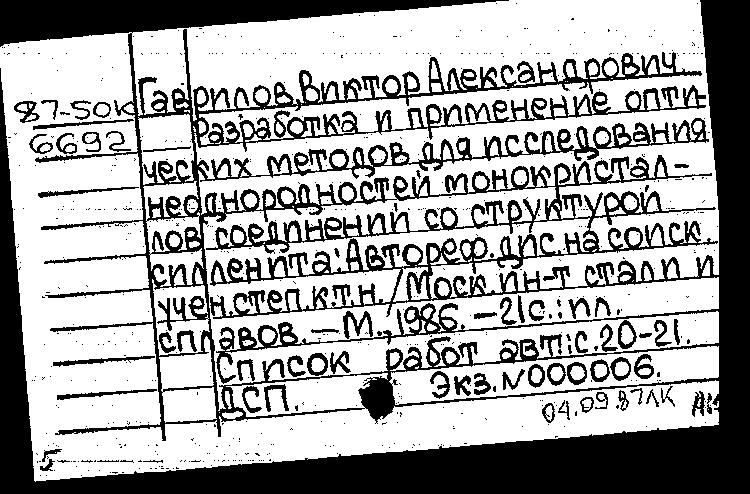 Гаврилов, Виктор Александрович
87-50К
6692
Разработка и применение опти-
ческих методов для исследования
неоднородностей монокристал-
лов соединений со структурой
силленита: Автореф. дис. на соиск.
учен. степ. к.т.н. / Моск. ин-т стали и
сплавов. — М., 1986. — 21с.: ил.
Список работ авт.: с. 20-21.
ДСП. Экз. N000006.
04.09.87ЛК
5